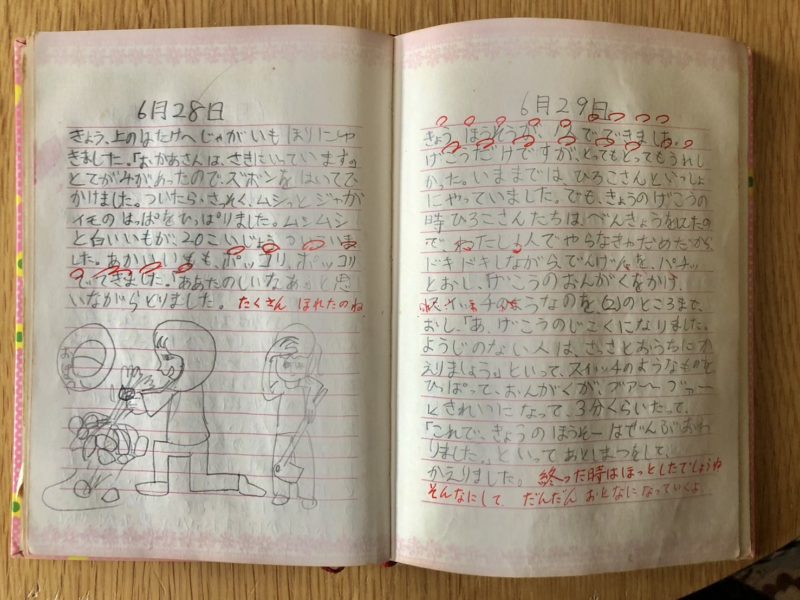 6月28日
きょう、上のはたけへじゃがいもほりにゆ
きました。「おかあさんは、さきにいっています。」
とてがみがあったので、ズボンをはいてで
かけました。ついたら、さっそく、ムシっとジャガ
イモのはっぱをひっぱりました。ムシムシ
と白いいもが、20こいじょうついていま
した。あかいいもも、ポッコリ、ポッコリ
でてきました。ああたのしいなあと思
いながらとりました。
たくさん ほれたのね
6月29日
きょう、ほうそうが、1人でできました。
げこうだけですが、とってもとってもうれし
かった。いままでは、ひろこさんといっしょ
にやっていました。でも、きょうのげこうの
時ひろこさんたちは、べんきょうをしてたの
で、わたし1人でやらなきゃだめだから
ドキドキしながら、でんげんを、パチッ
とおし、げこうのおんがくをかけ、
スイッチのようなのを、(2)のところまで、
おし、「あ、げこうのじこくになりました。
ようじのない人は、さっさとおうちにか
えりましょう。」といって、スイッチのようなものを
ひっぱって、おんがくが、ブァーブァー
ときれいになって、3分くらいたって、
「これで、きょうのほうそーはぜんぶおわ
りました。」といってあとしまつをして、
かえりました。終った時はほっとしたでしょうね
そんなにして だんだん おとなになっていくよ